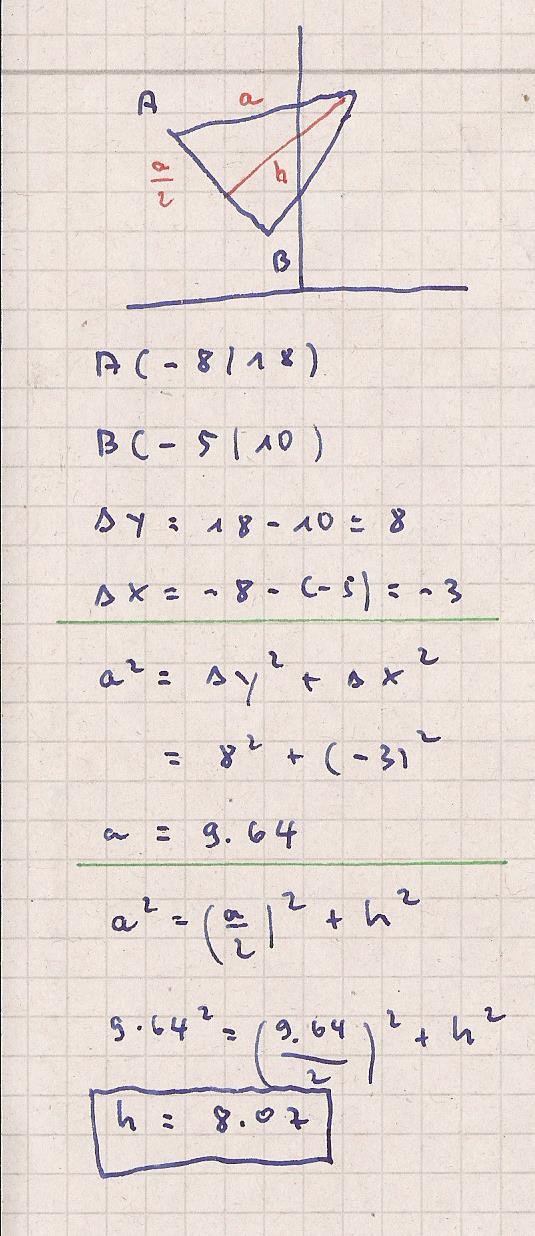 A
a
a/2
h
B
A(-8|18)
B(-5|10)
Δy = 18 - 10 = 8
Δx = -8 - (-5) = -3
a² = Δy² + Δx²
= 8² + (-3)²
a = 9.64
a² = (a/2)² + h²
9.64² = (9.64/2)² + h²
h = 8.07